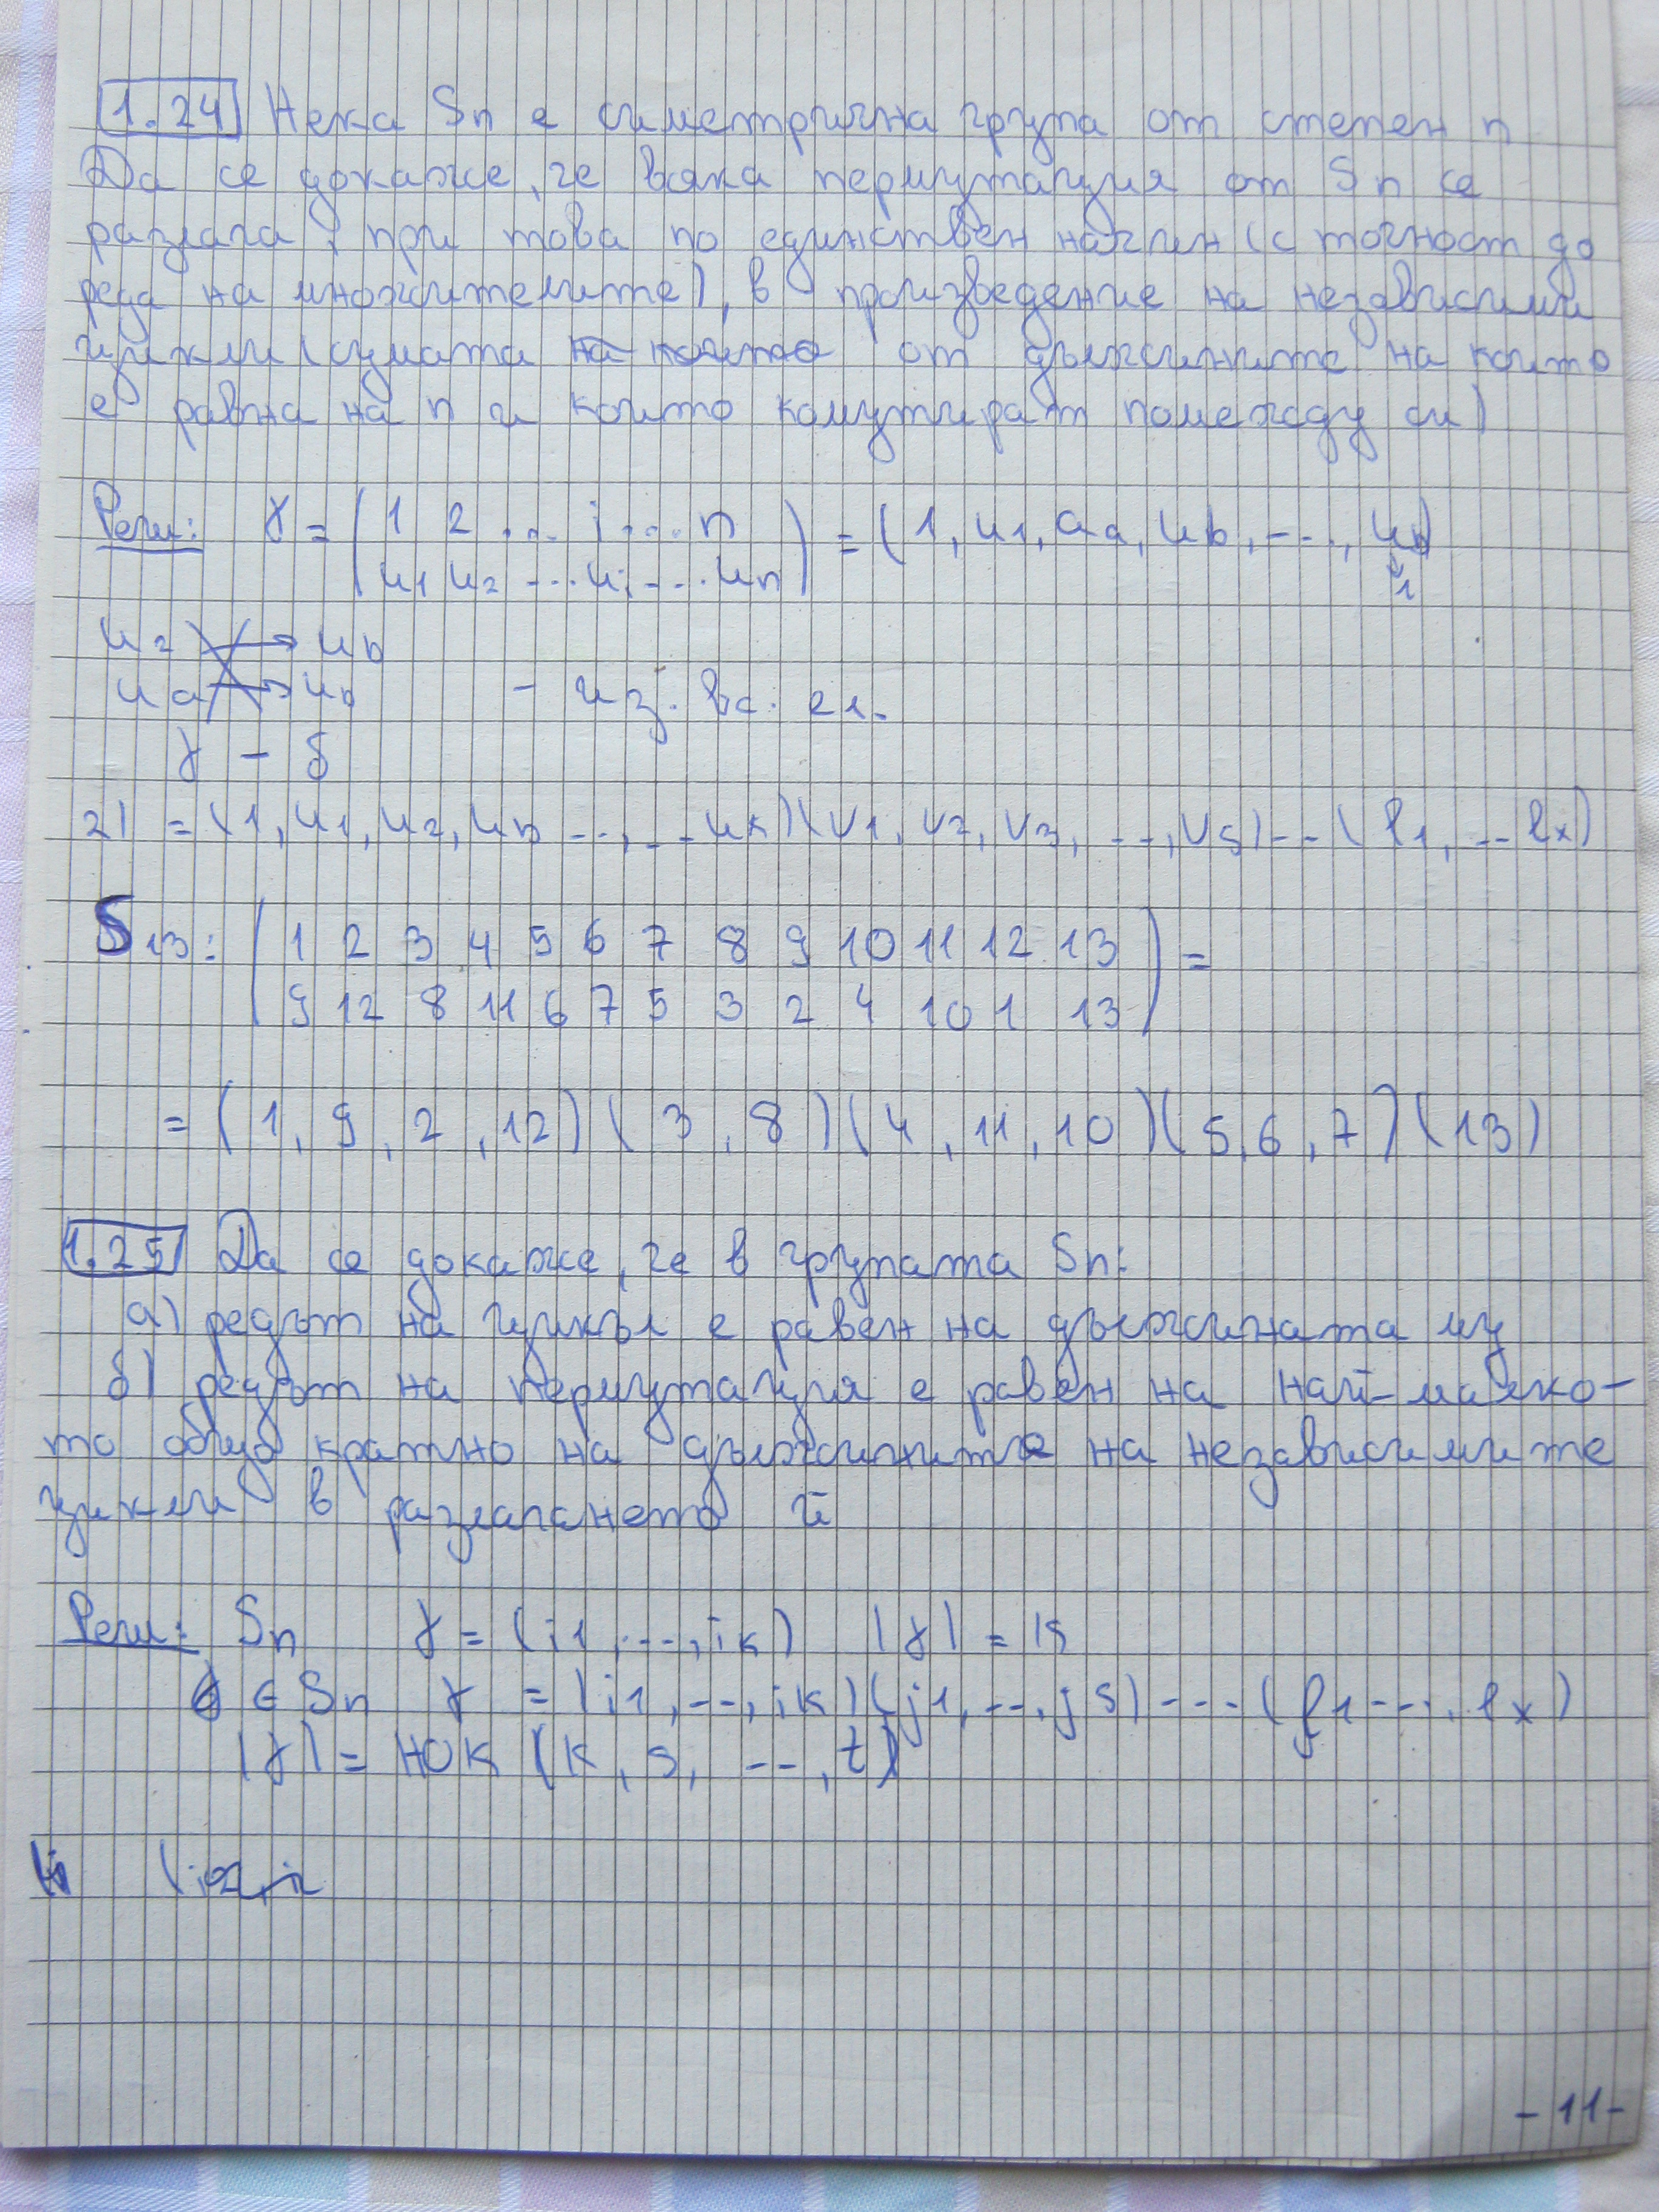 1.24 Нека Sn е симетрична група от степен n
Да се докаже, че всяка пермутация от Sn се
разлага, при това по единствен начин (с точност до
реда на множителите), в произведение на независими
цикли (сумата на които от дължините на които
е равна на n и които комутират помежду си)
Реш: γ = ( 1 2 ... i ... n ) = (1, u1, ua, ub, ..., us)
u1 u2 ... ui ... un
1
u2 → ub
ua → ub - из. вс. ел.
γ - δ
2) = (1, u1, u2, ub ..., ... uk)(v1, v2, v3, ..., vs) ... (l1, ... lx)
S13: ( 1 2 3 4 5 6 7 8 9 10 11 12 13 ) =
9 12 8 11 6 7 5 3 2 4 10 1 13
= (1, 9, 2, 12)(3, 8)(4, 11, 10)(5, 6, 7)(13)
1.25 Да се докаже, че в групата Sn:
а) редът на цикъл е равен на дължината му
б) редът на пермутация е равен на най-малко-
то общо кратно на дължините на независимите
цикли в разлагането ѝ
Реш: Sn γ = (i1, ..., ik) |γ| = k
γ ∈ Sn γ = (i1, ..., ik)(j1, ..., js) ... (l1 ..., lx)
|γ| = НОК (k, s, ..., t)
- 11 -